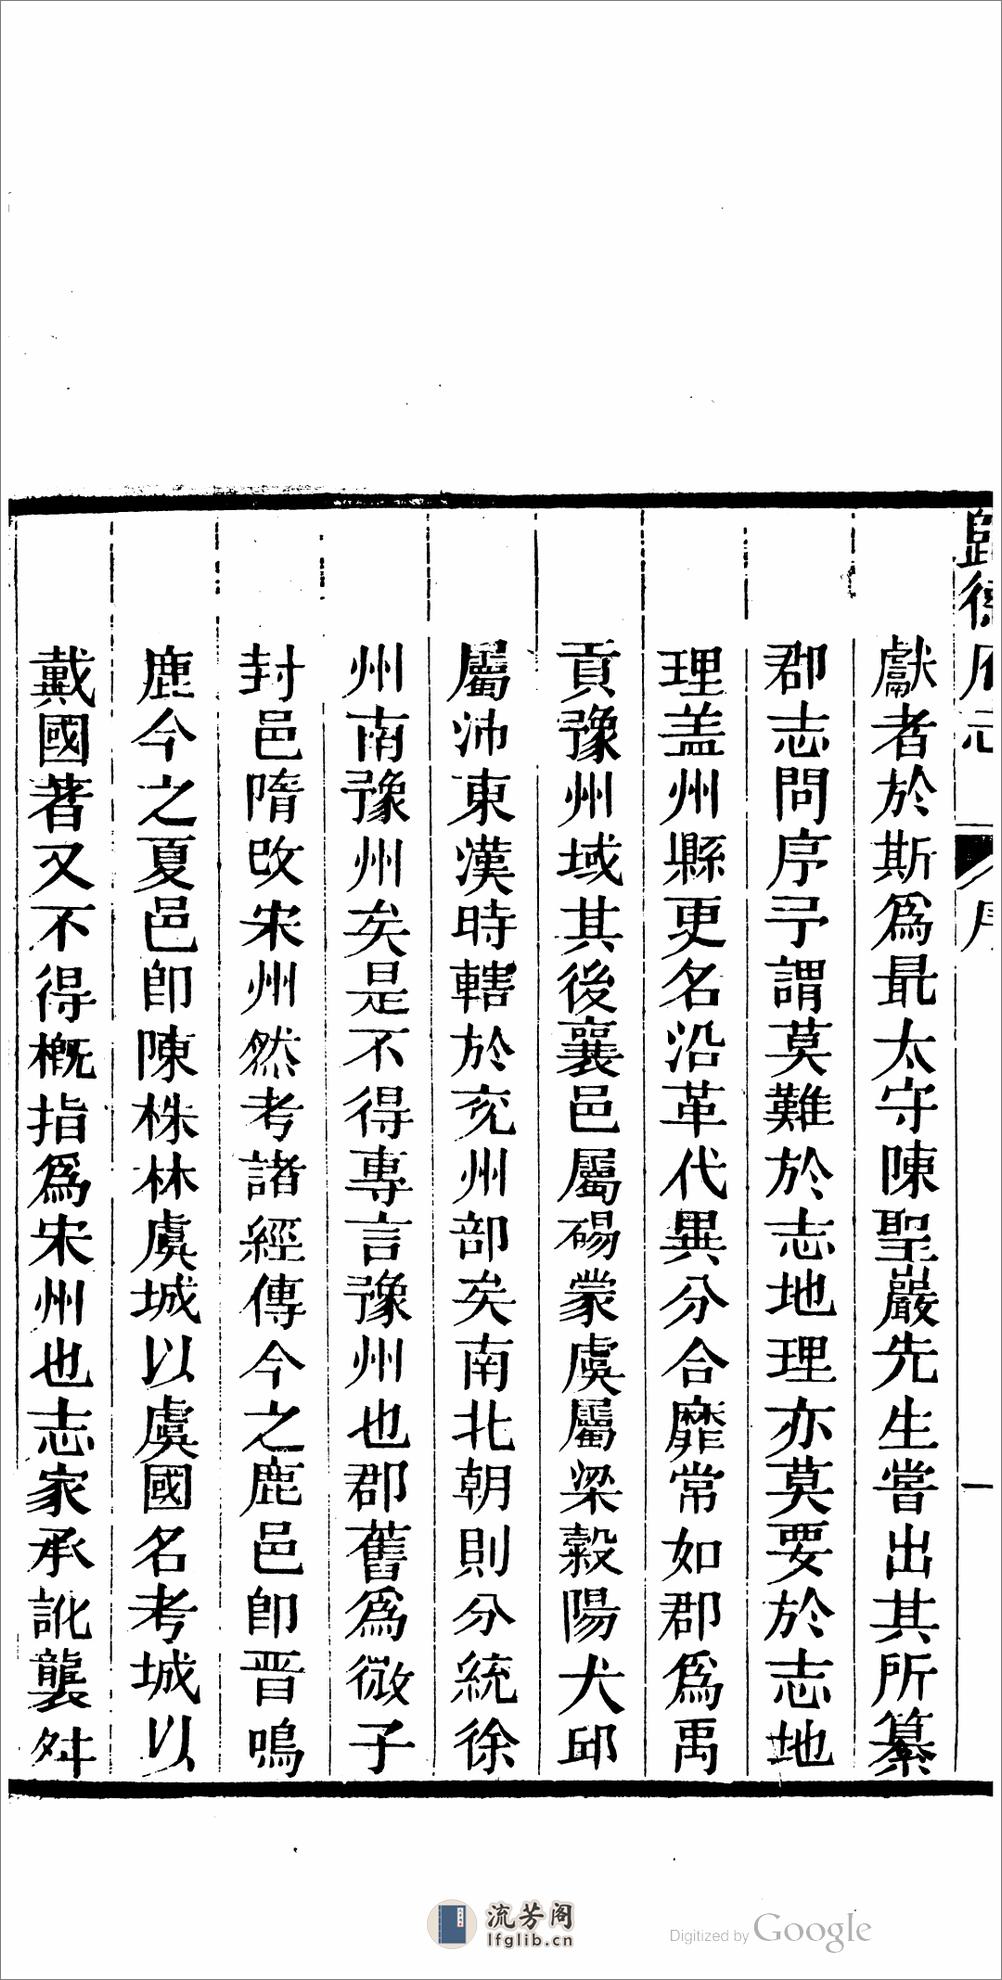 歸德府志
序
一
獻者於斯爲最太守陳聖巖先生嘗出其所纂
郡志問序予謂莫難於志地理亦莫要於志地
理盖州縣更名沿革代異分合靡常如郡爲禹
貢豫州域其後襄邑屬碭蒙虞屬梁穀陽犬邱
屬沛東漢時轄於兖州部矣南北朝則分統徐
州南豫州矣是不得專言豫州也郡舊爲微子
封邑隋改宋州然考諸經傳今之鹿邑卽晋鳴
鹿今之夏邑卽陳株林虞城以虞國名考城以
戴國著又不得槪指爲宋州也志家承訛襲舛
流芳阁
lfglib.cn
Digitized by Google